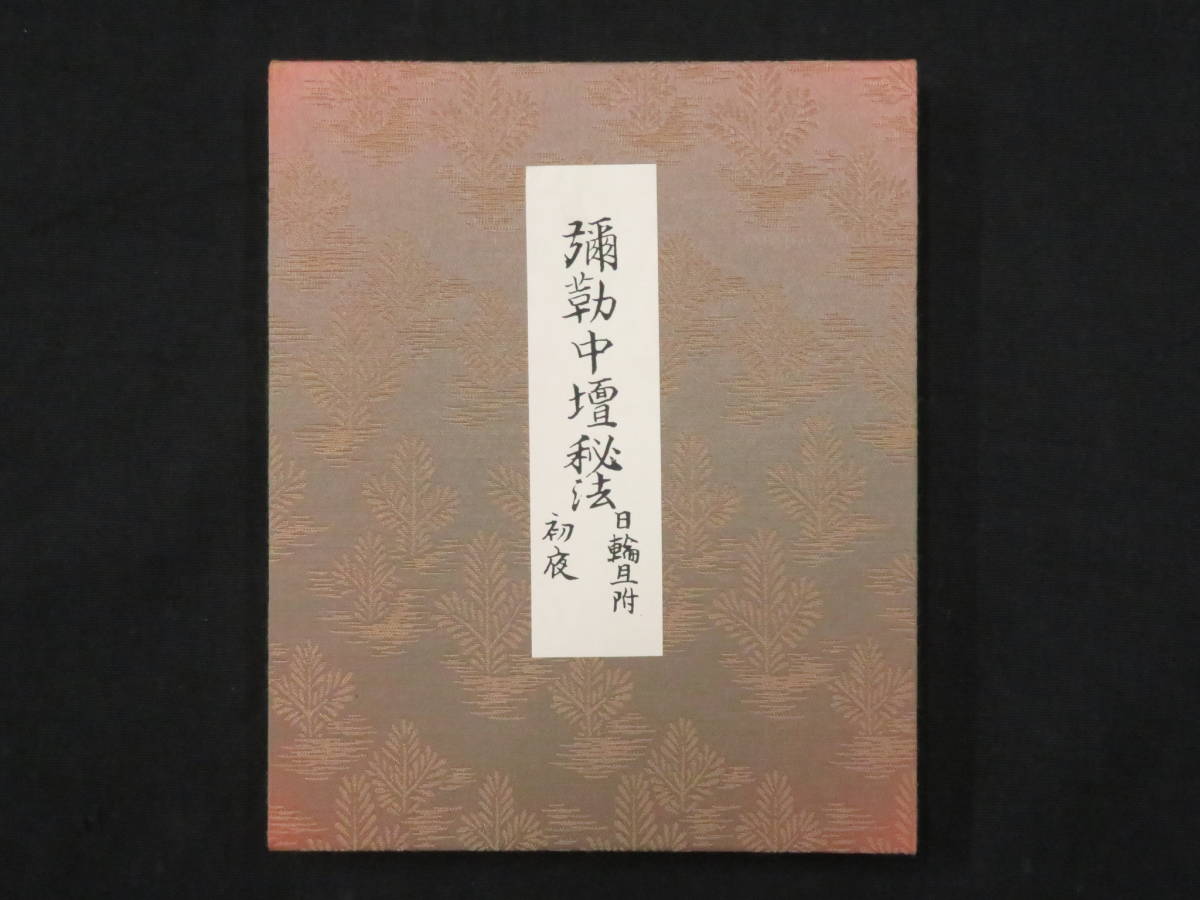 彌勒中壇秘法
日輪旦附
初夜